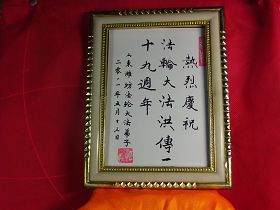 熱烈慶祝
法輪大法洪傳一
十九週年
山東濰坊法輪大法弟子
二零一一年五月十三日